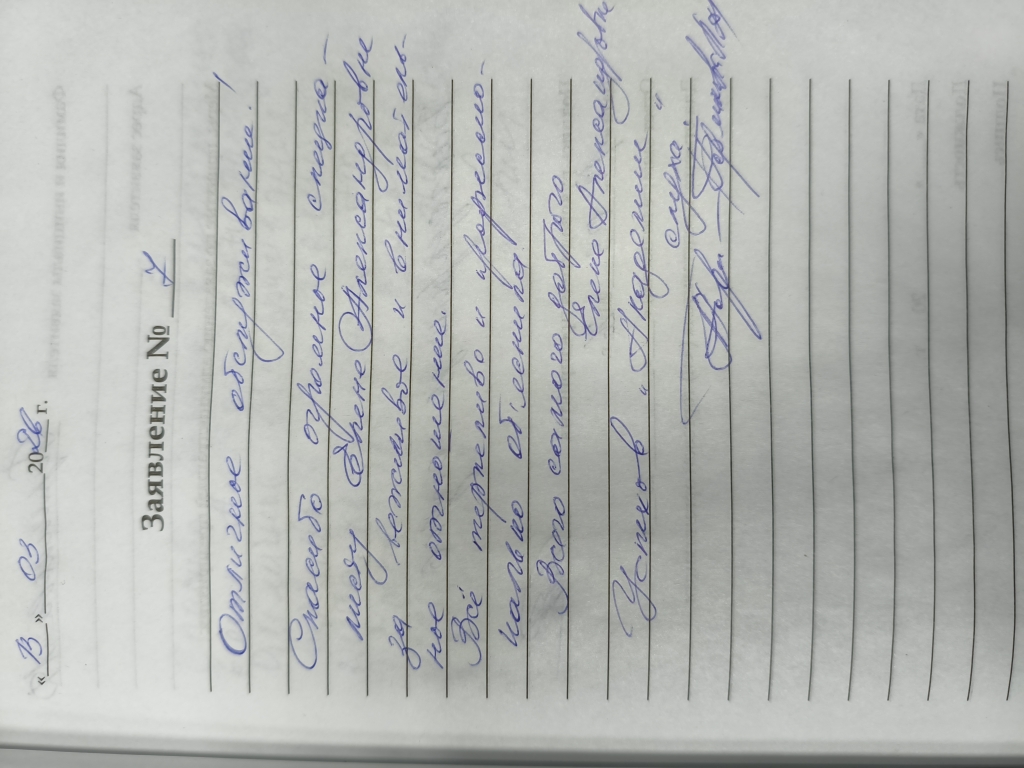 «13» 03 2026 г.
Заявление № 7
Отличное обслуживание!
Спасибо огромное специа-
листу Елене Александровне
за вежливое и вниматель-
ное отношение.
Всё терпеливо и професио-
нально объяснила
Всего самого доброго
Елене Александровне
Успехов "Академии
слуха"